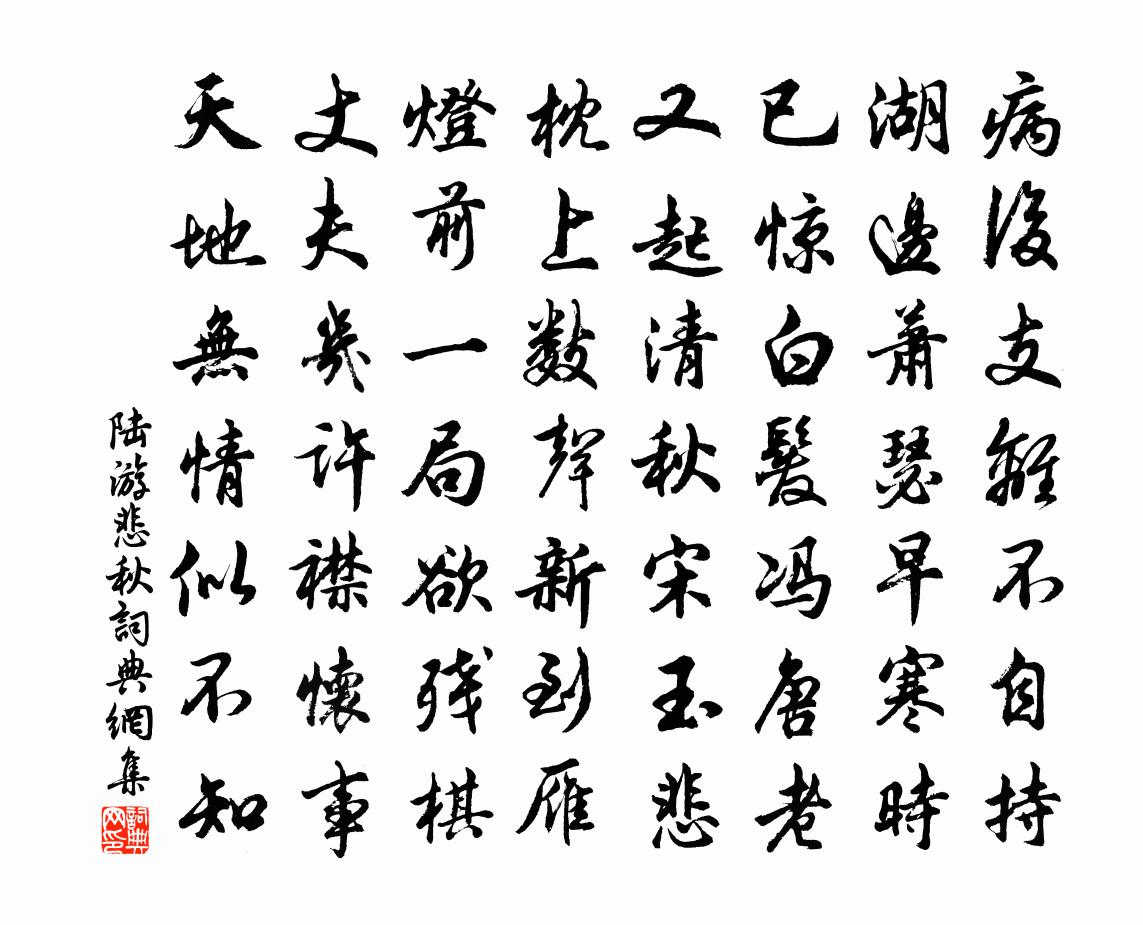 病後支離不自持
湖邊蕭瑟早寒時
已惊白髮冯唐老
又起清秋宋玉悲
枕上数聲新到雁
燈前一局欲残棋
丈夫幾許襟懷事
天地無情似不知
陆游悲秋詞典網集
詞典网印